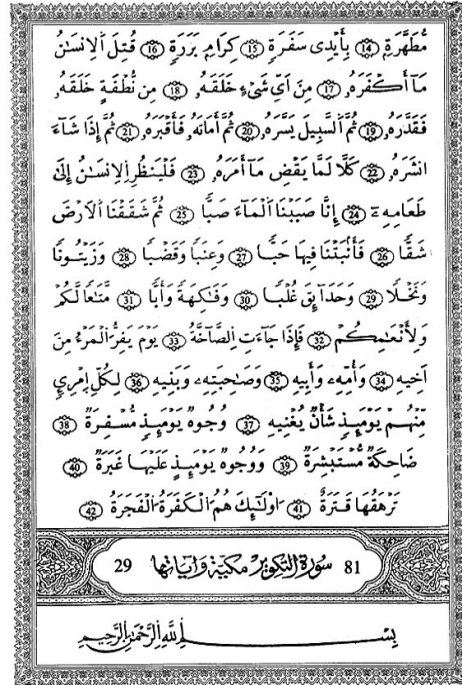 مُّطَهَّرَةِۢ 14 بِأَيْدِے سَفَرَةٖ 15 كِرَامِۢ بَرَرَةٖ 16 قُتِلَ اَ۬لِانسَٰنُ
مَآ أَكْفَرَهُۥ 17 مِنَ اَيِّ شَےْءٍ خَلَقَهُۥ 18 مِن نُّطْفَةٍ خَلَقَهُۥ
فَقَدَّرَهُۥ 19 ثُمَّ اَ۬لسَّبِيلَ يَسَّرَهُۥ 20 ثُمَّ أَمَاتَهُۥ فَأَقْبَرَهُۥ 21 ثُمَّ إِذَا شَآءَ
انشَرَهُۥ 22 كَلَّا لَمَّا يَقْضِ مَآ أَمَرَهُۥ 23 فَلْيَنظُرِ اِ۬لِانسَٰنُ إِلَىٰ
طَعَامِهِۦٓ 24 إِنَّا صَبَبْنَا اَ۬لْمَآءَ صَبّاٗ 25 ثُمَّ شَقَقْنَا اَ۬لَارْضَ
شَقّاٗ 26 فَأَنۢبَتْنَا فِيهَا حَبّاٗ 27 وَعِنَباٗ وَقَضْباٗ 28 وَزَيْتُوناٗ
وَنَخْلاٗ 29 وَحَدَآئِقَ غُلْباٗ 30 وَفَٰكِهَةٗ وَأَبّاٗ 31 مَّتَٰعاٗ لَّكُمْ
وَلِأَنْعَٰمِكُمْ 32 فَإِذَا جَآءَتِ اِ۬لصَّآخَّةُ 33 يَوْمَ يَفِرُّ اُ۬لْمَرْءُ مِنَ
اَخِيهِ 34 وَأُمِّهِۦ وَأَبِيهِ 35 وَصَٰحِبَتِهِۦ وَبَنِيهِ 36 لِكُلِّ اِ۪مْرِۓٖ
مِّنْهُمْ يَوْمَئِذٖ شَأْنٞ يُغْنِيهِ 37 وُجُوهٞ يَوْمَئِذٖ مُّسْفِرَةٞ 38
ضَاحِكَةٞ مُّسْتَبْشِرَةٞ 39 وَوُجُوهٞ يَوْمَئِذٍ عَلَيْهَا غَبَرَةٞ 40
تَرْهَقُهَا قَتَرَةٌ 41 اُ۟وْلَٰٓئِكَ هُمُ اُ۬لْكَفَرَةُ اُ۬لْفَجَرَةُ 42
81 سورة التكوير مكية وآياتها 29
بِسْمِ اِ۬للَّهِ اِ۬لرَّحْمَٰنِ اِ۬لرَّحِيمِ